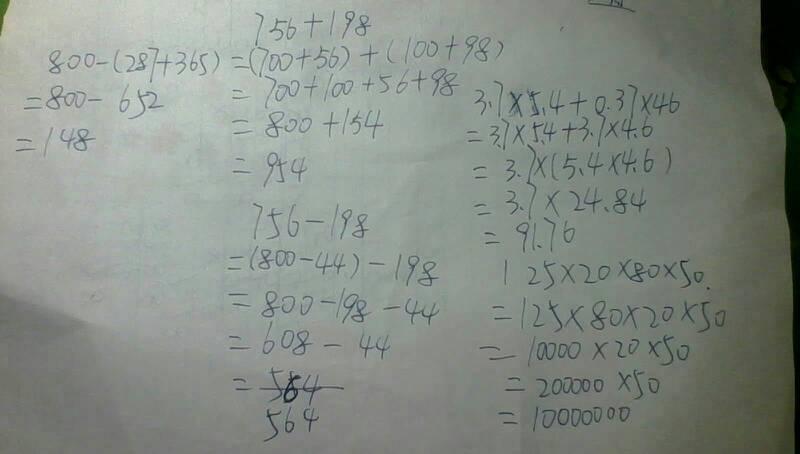 800-(287+365)
=800-652
=148
756+198
=(700+56)+(100+98)
=700+100+56+98
=800+154
=954
756-198
=(800-44)-198
=800-198-44
=608-44
=564
564
3.7×5.4+0.37×46
=3.7×5.4+3.7×4.6
=3.7×(5.4×4.6)
=3.7×24.84
=91.76
125×20×80×50
=125×80×20×50
=10000×20×50
=200000×50
=10000000